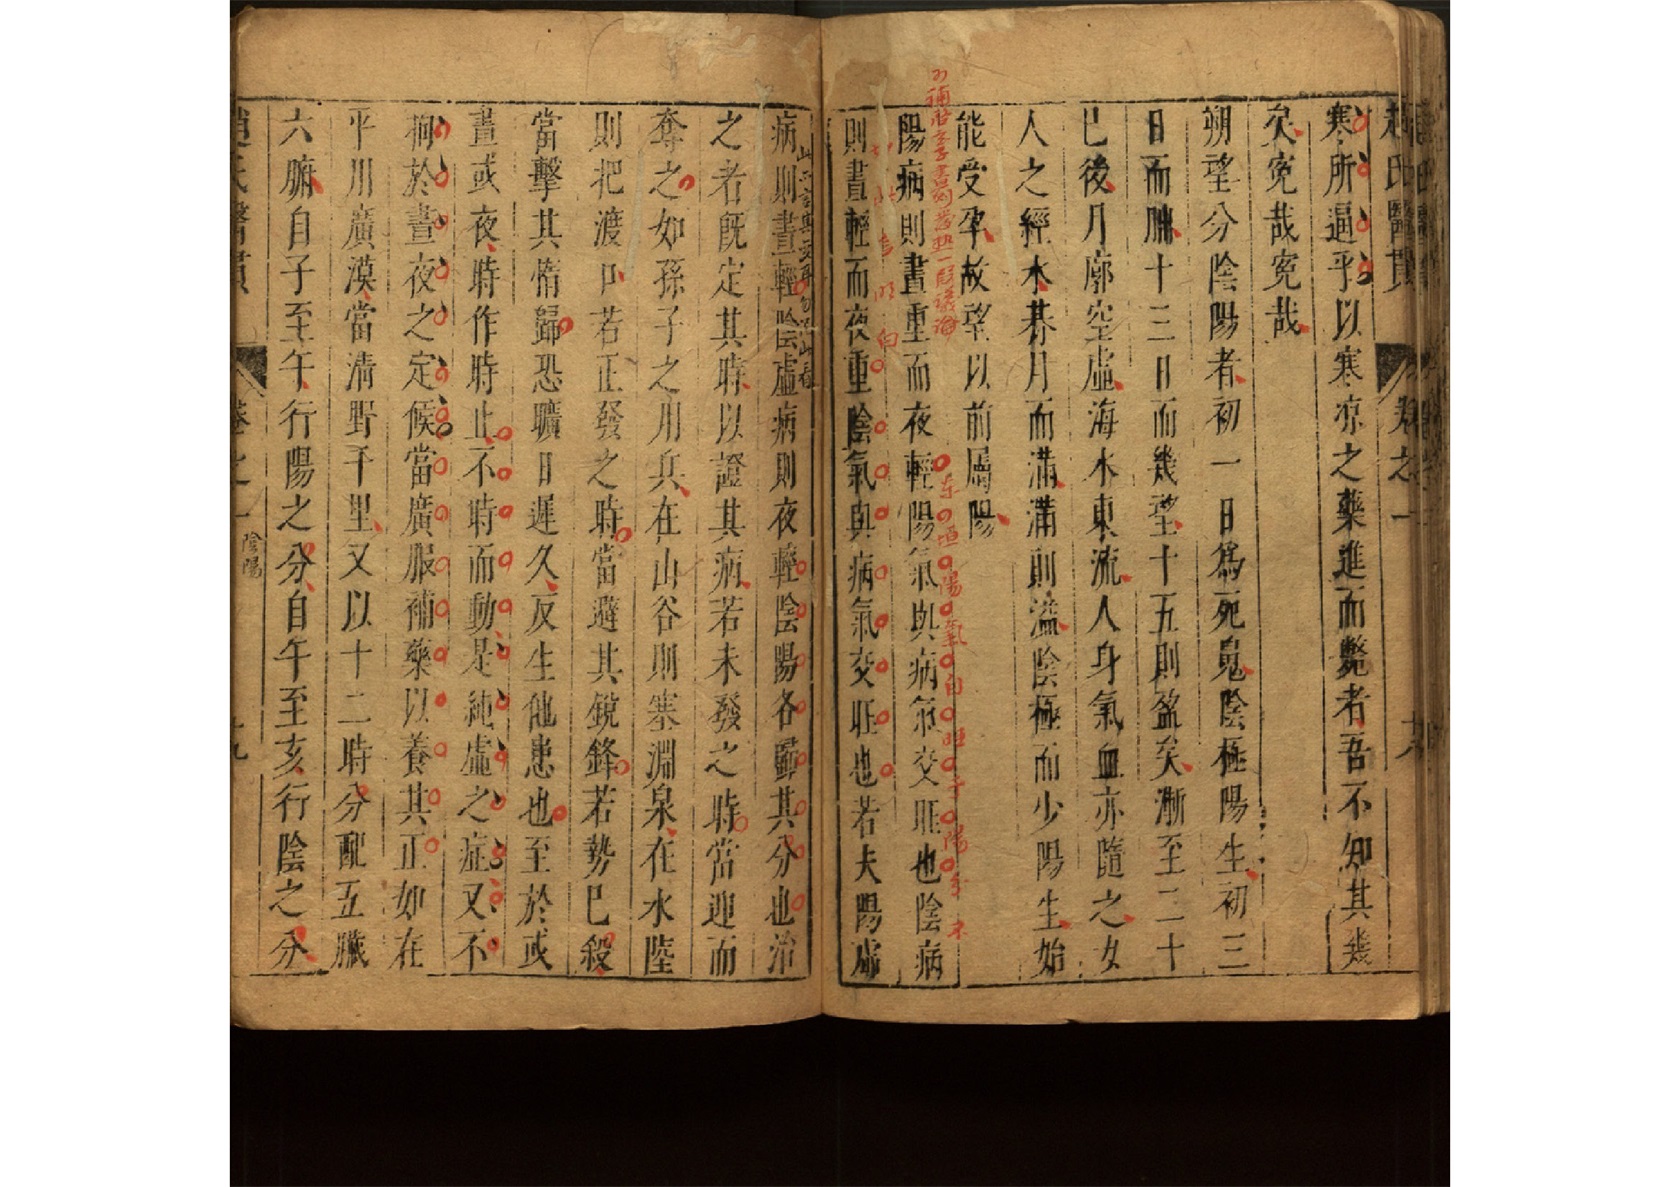 趙氏醫貫 卷之一
寒所逼乎以寒凉之藥進而斃者吾不知其幾
矣寃哉寃哉
朔望分陰陽者初一日爲死䰟陰極陽生初三
日而朏十三日而幾望十五則盈矣漸至二十
已後月廓空虛海水東流人身氣血亦隨之女
人之經水朞月而滿滿則溢陰極而少陽生始
能受孕故望以前屬陽
陽病則晝重而夜輕陽氣與病氣交旺也陰病
則晝輕而夜重陰氣與病氣交旺也若夫陽虛
病則晝輕陰虛病則夜輕陰陽各歸其分也治
之者旣定其時以證其病若未發之時當迎而
奪之如孫子之用兵在山谷則塞淵泉在水陸
則把渡口若正發之時當避其銳鋒若勢已殺
當擊其惰歸恐曠日遲久反生他患也至於或
晝或夜時作時止不時而動是純虛之症又不
拘於晝夜之定候當廣服補藥以養其正如在
平川廣漠當清野千里又以十二時分配五臟
六腑自子至午行陽之分自午至亥行陰之分
趙氏醫貫 卷之一 陰陽 十九